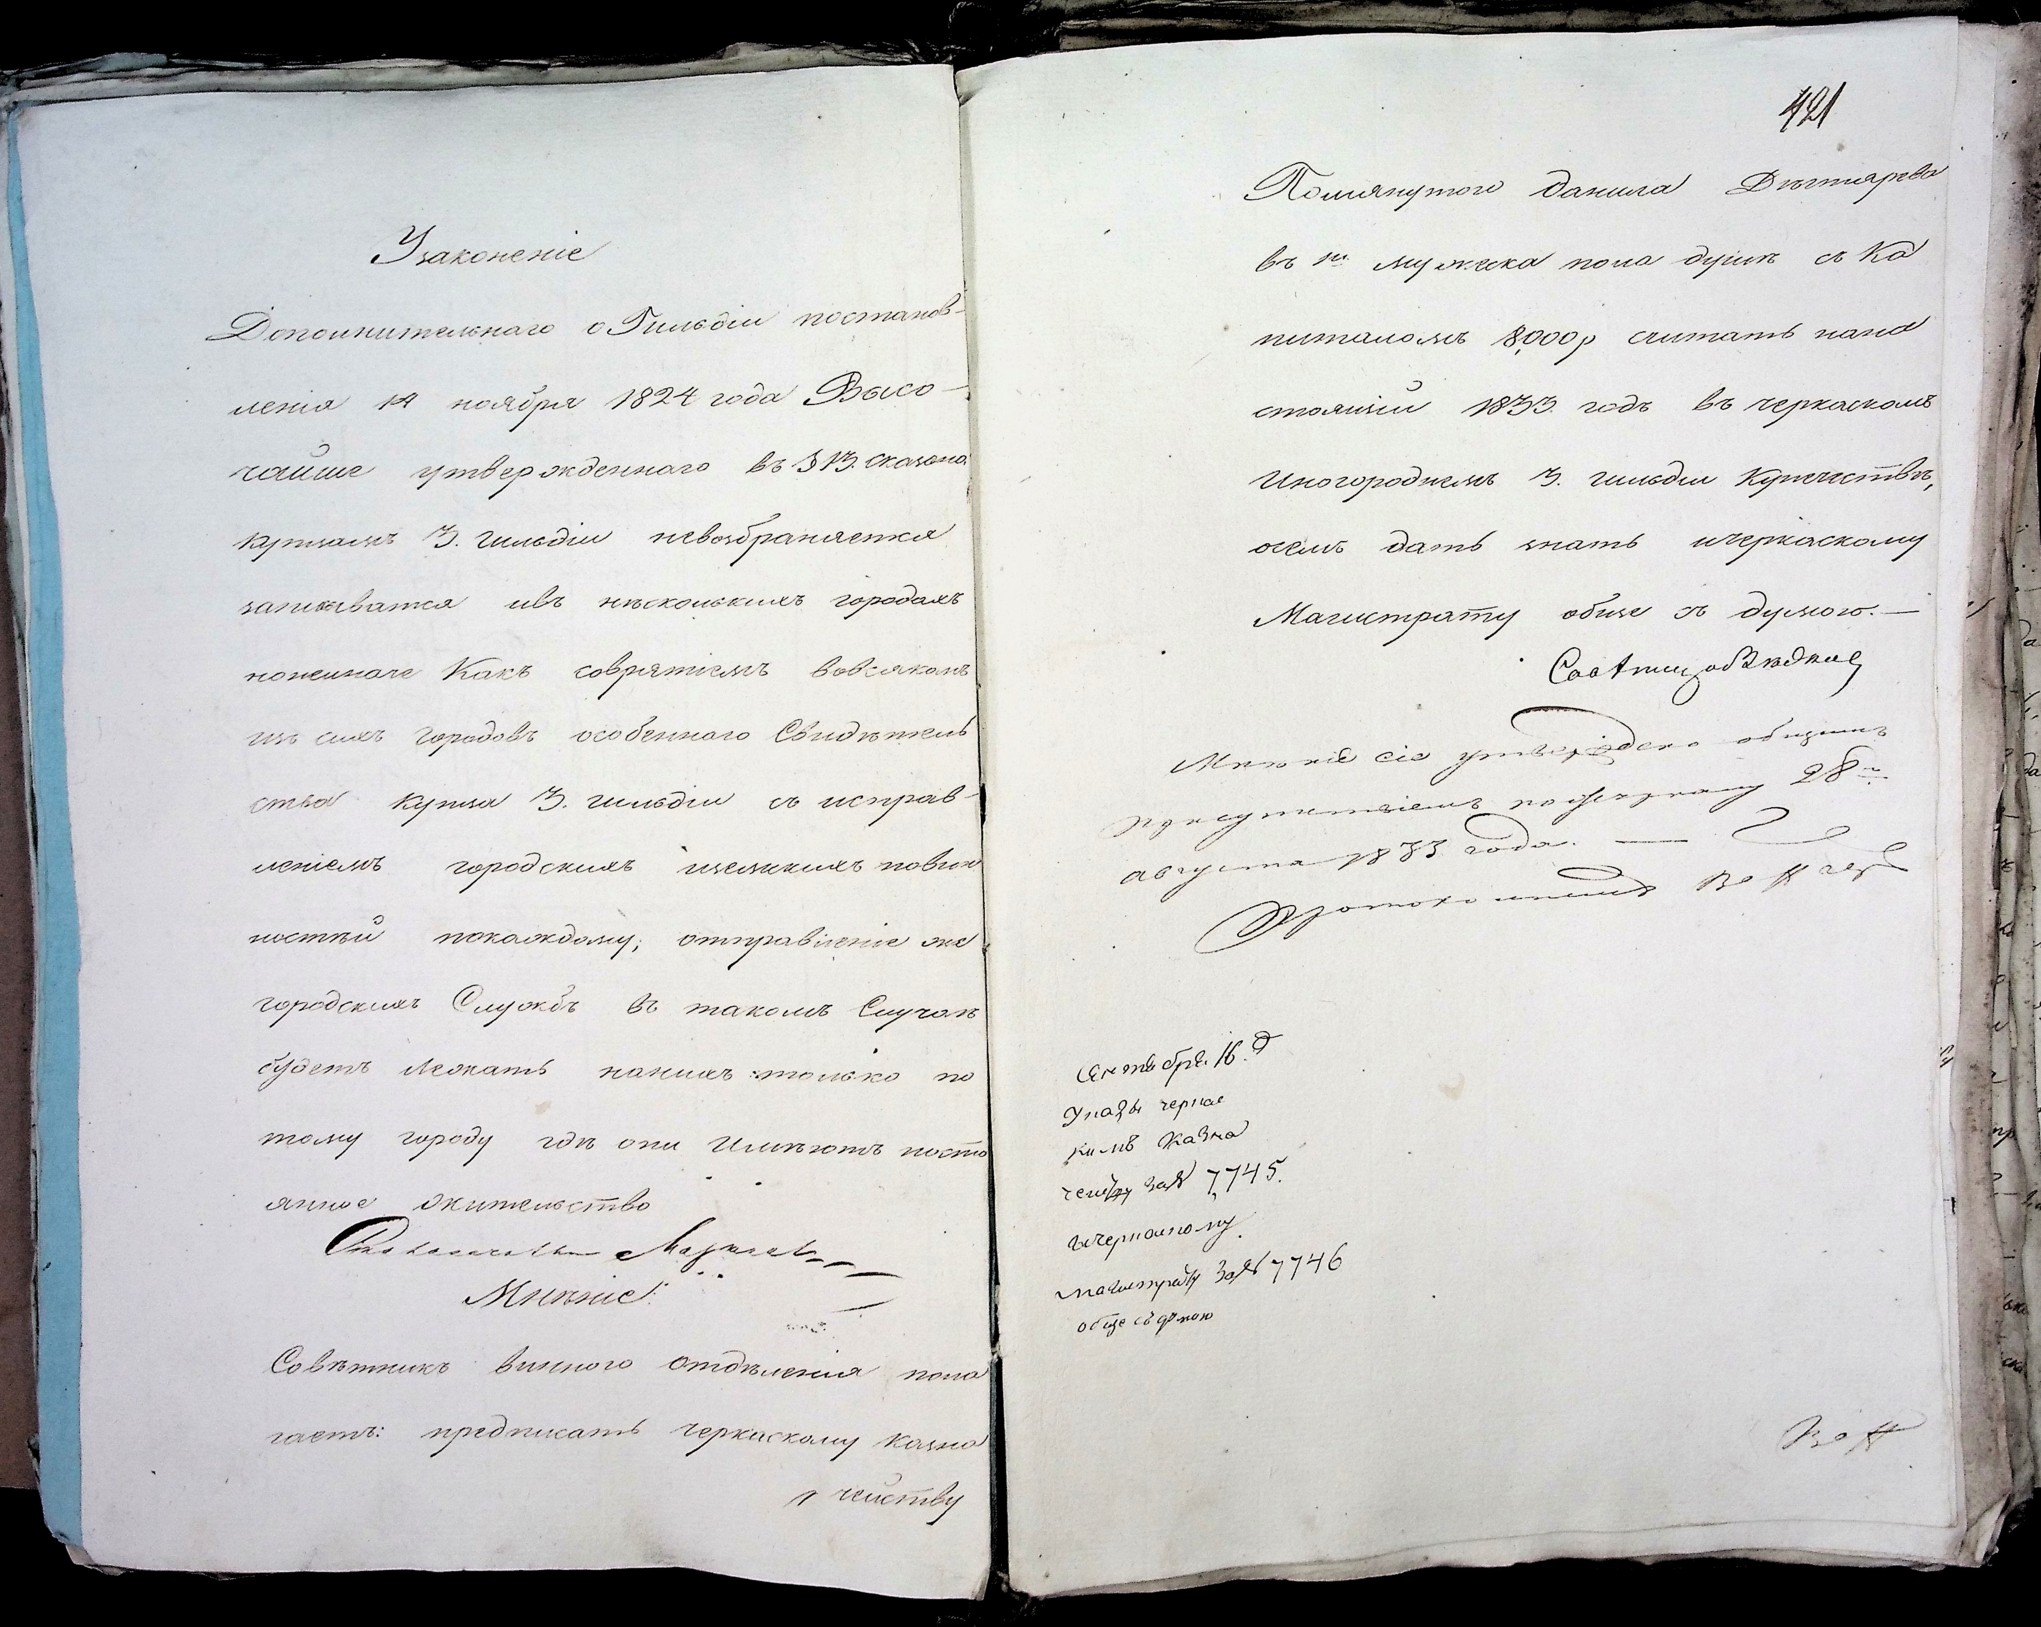 Узаконеніе
Дополнительнаго о Гильдіи постанов-
ленія 14 ноября 1824 года Высо-
чайше утвержденнаго въ § 13. сказано:
купцамъ 3. гильдіи невозбраняется
записыватся ивъ несколькихъ городахъ
нонеиначе Какъ совзятіемъ вовсякомъ
изъ сихъ городовъ особенного Свидѣтель
ства купца 3. гильдіи съ исправ-
леніемъ городскихъ иземскихъ повин
ностей покаждому; отправленіе же
городскихъ Службъ въ такомъ Случаѣ
будетъ лежать нанихъ только по
тому городу гдѣ они Имѣютъ посто
янное жительство
Мнѣніе:
Совѣтникъ винного отдѣленія пола
гаетъ: предписать черкаскому казна
чейству
421
Помянутого данила Дихтярева
въ мужеска пола душѣ съ Ка
питаломъ 8,000 р считать нана
стоящій 1833. годъ въ черкаскомъ
Иногороднемъ 3. гильдіи Купечествѣ,
очемъ дать знать ичеркаскому
Магистрату обще съ думою.—
Мнѣніе сіе утверждено общимъ
присутствіемъ пожурналу 28го
августа 1833 года. —
Протоколистъ
Сентября 16. д
Указы черкас
кимъ Казна
чейству за № 7,745.
ичеркаскому
магистрату за № 7746
обще съ думою